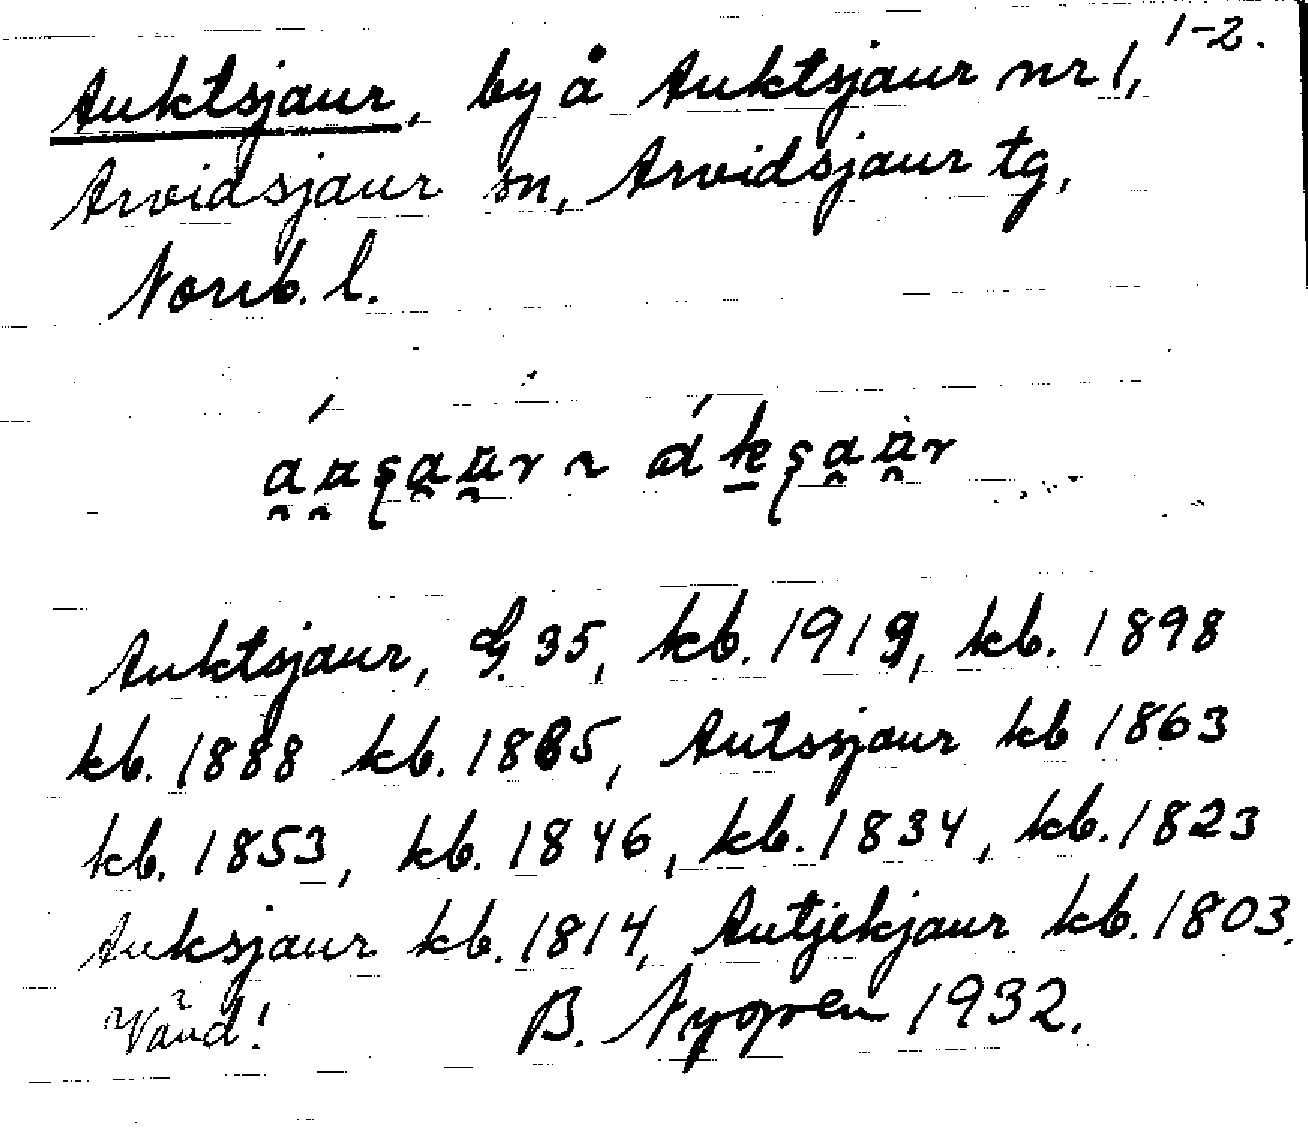 Auktsjaur, by å Auktsjaur nr 1, 1-2.
Arvidsjaur sn, Arvidsjaur tg,
Norrb. l.
Auktsjaur, G. 35, kb. 1919, kb. 1898
kb. 1888 kb. 1865, Autssjaur kb 1863
kb. 1853, kb. 1846, kb. 1834, kb. 1823
Auksjaur kb. 1814, Autjekjaur kb. 1803.
Vänd! B. Nygren 1932.